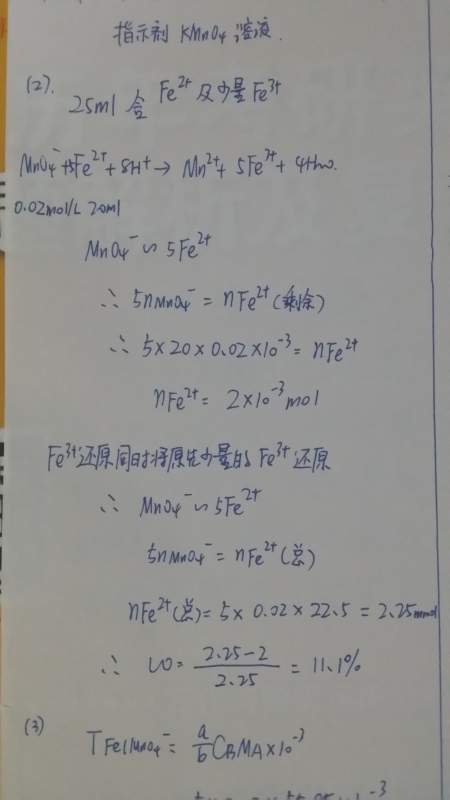 指示剂 KMnO₄ 溶液.
(2). 25ml 含 Fe²⁺ 及少量 Fe³⁺
MnO₄⁻+5Fe²⁺+8H⁺→ Mn²⁺+ 5Fe³⁺+ 4H₂O.
0.02mol/L 20ml
MnO₄⁻ ∽ 5Fe²⁺
∴ 5nMnO₄⁻ = nFe²⁺(剩余)
∴ 5×20×0.02×10⁻³ = nFe²⁺
nFe²⁺ = 2×10⁻³ mol
Fe³⁺还原同时将原先少量的 Fe³⁺还原
∴ MnO₄⁻ ∽ 5Fe²⁺
5nMnO₄⁻ = nFe²⁺(总)
nFe²⁺(总) = 5× 0.02 × 22.5 = 2.25mmol
∴ ω = (2.25-2)/2.25 = 11.1%
(3) TFe/MnO₄⁻ = a/b CBMA×10⁻³